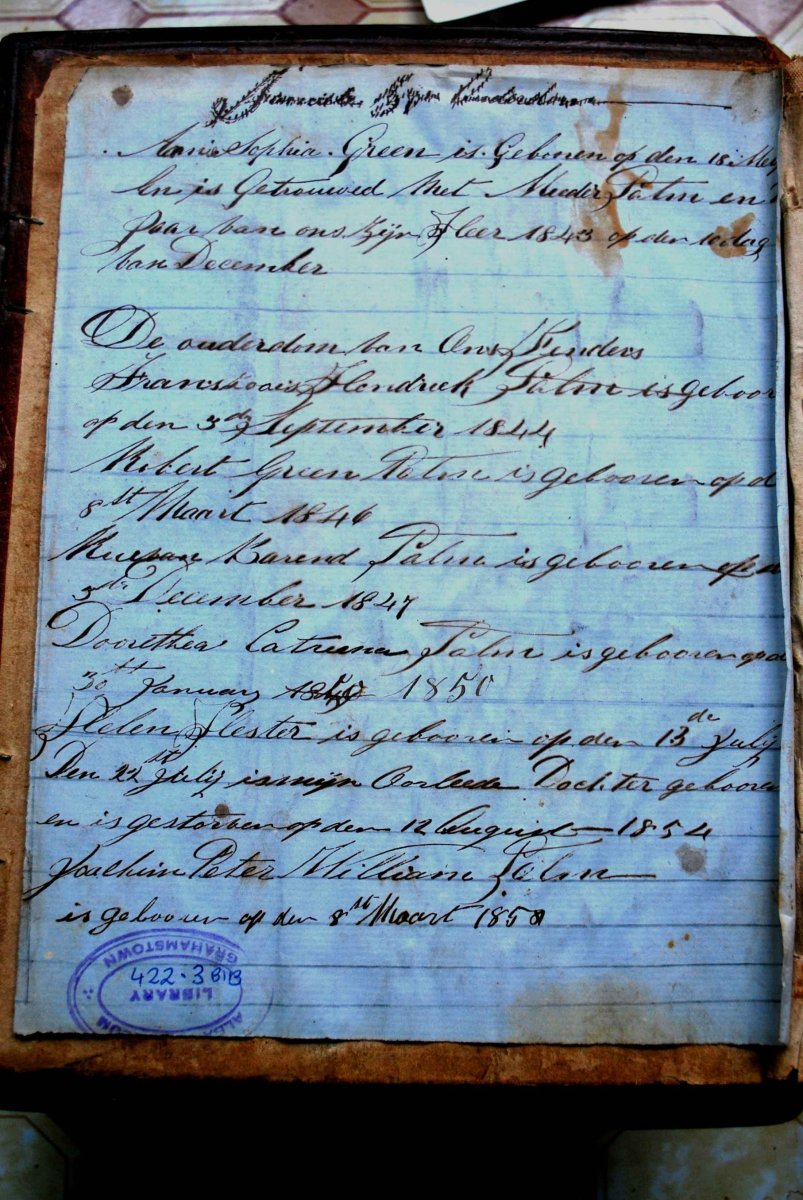 Annie Sophia. Green is. Gebooren op den 18 Mey
En is Getrouwed Met Meeder Palm en
Jaar van ons Zijn Heer 1843 op den 10 dag
van December
De ouderdom van Ons Kenders
Frans Hendrick Palm is geboor
op den 3de September 1844
Robert Green Palm is gebooren op d
8st Maart 1846
Barend Palm is gebooren op
5de December 1847
Doorethea Catriena Palm is gebooren op d
30st January 1850
Helen Hester is gebooren op den 13de Julij
Den 22st Julij is mijn Oorleede Dochter gebooren
en is gestorven op den 12 Augustᵗ 1854
Joachim Peter William Palm
is gebooren op den 8st Maart 1858
422.3 BIB
LIBRARY
GRAHAMSTOWN